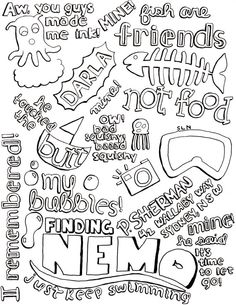 Aw, you guys
made
me ink!
MINE!
fish are
friends
not food
DARLA
mine!
he
touched
the
butt
ow!
bad
squishy
bad
squishy
my
bubbles!
P. SHERMAN
42 WALLABY WAY
SYDNEY, NSW
mine!
he said!
It's
time to
let
go!
I remembered!
FINDING
NEMO
Just keep swimming